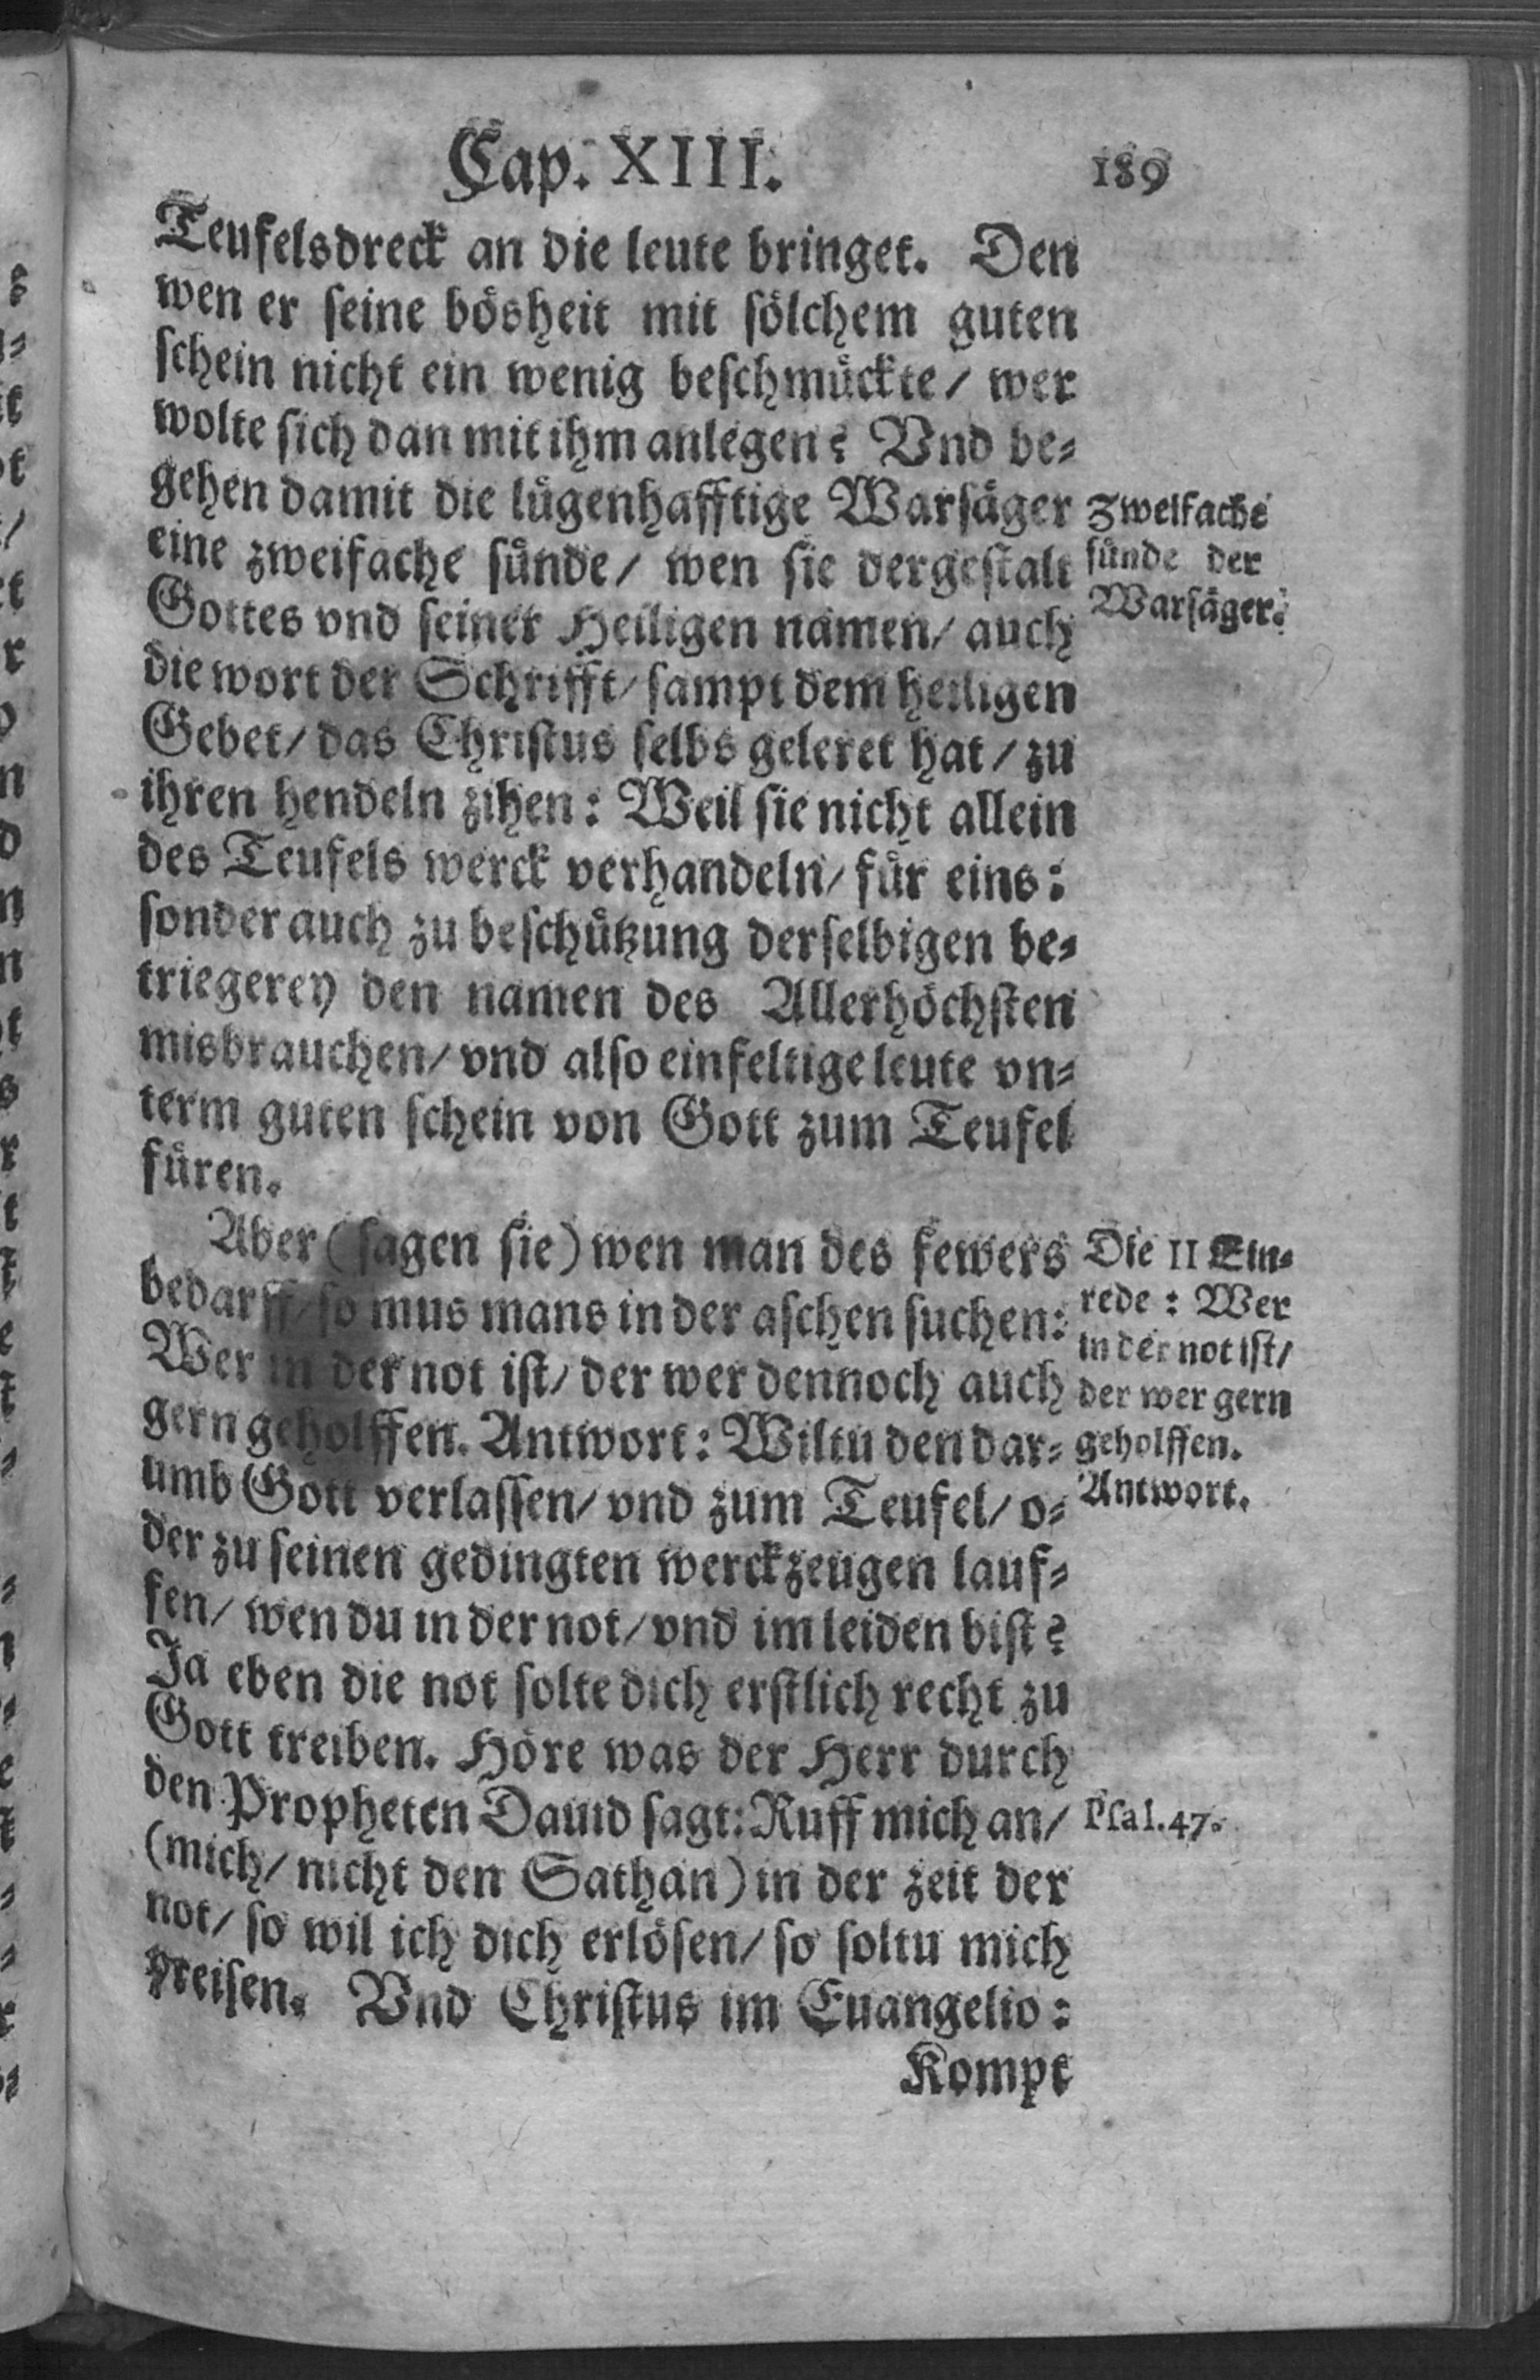 Cap. XIII. 189
Teufelsdreck an die leute bringet. Den
wen er seine bösheit mit sölchem guten
schein nicht ein wenig beschmückte/ wer
wolte sich dan mit ihm anlegen? Vnd be-
gehen damit die lügenhafftige Warsäger
eine zweifache sünde/ wen sie dergestalt
Gottes vnd seiner Heiligen namen/ auch
die wort der Schrifft/ sampt dem heiligen
Gebet/ das Christus selbs geleret hat/ zu
ihren hendeln zihen: Weil sie nicht allein
des Teufels werck verhandeln/ für eins:
sonder auch zu beschützung derselbigen be-
triegerey den namen des Allerhöchsten
misbrauchen/ vnd also einfeltige leute vn-
term guten schein von Gott zum Teufel
füren.
Zweifache
sünde der
Warsäger.
Aber (sagen sie) wen man des fewers
bedarff/ so mus mans in der aschen suchen:
Wer in der not ist/ der wer dennoch auch
gern geholffen. Antwort: Wiltu den dar-
umb Gott verlassen/ vnd zum Teufel/ o-
der zu seinen gedingten werckzeugen lauf-
fen/ wen du in der not/ vnd im leiden bist?
Ja eben die not solte dich erstlich recht zu
Gott treiben. Höre was der Herr durch
den Propheten Dauid sagt: Ruff mich an/
(mich/ nicht den Sathan) in der zeit der
not/ so wil ich dich erlösen/ so soltu mich
preisen. Vnd Christus im Euangelio:
Die II Ein-
rede: Wer
in der not ist/
der wer gern
geholffen.
Antwort.
Psal. 47.
Kompt